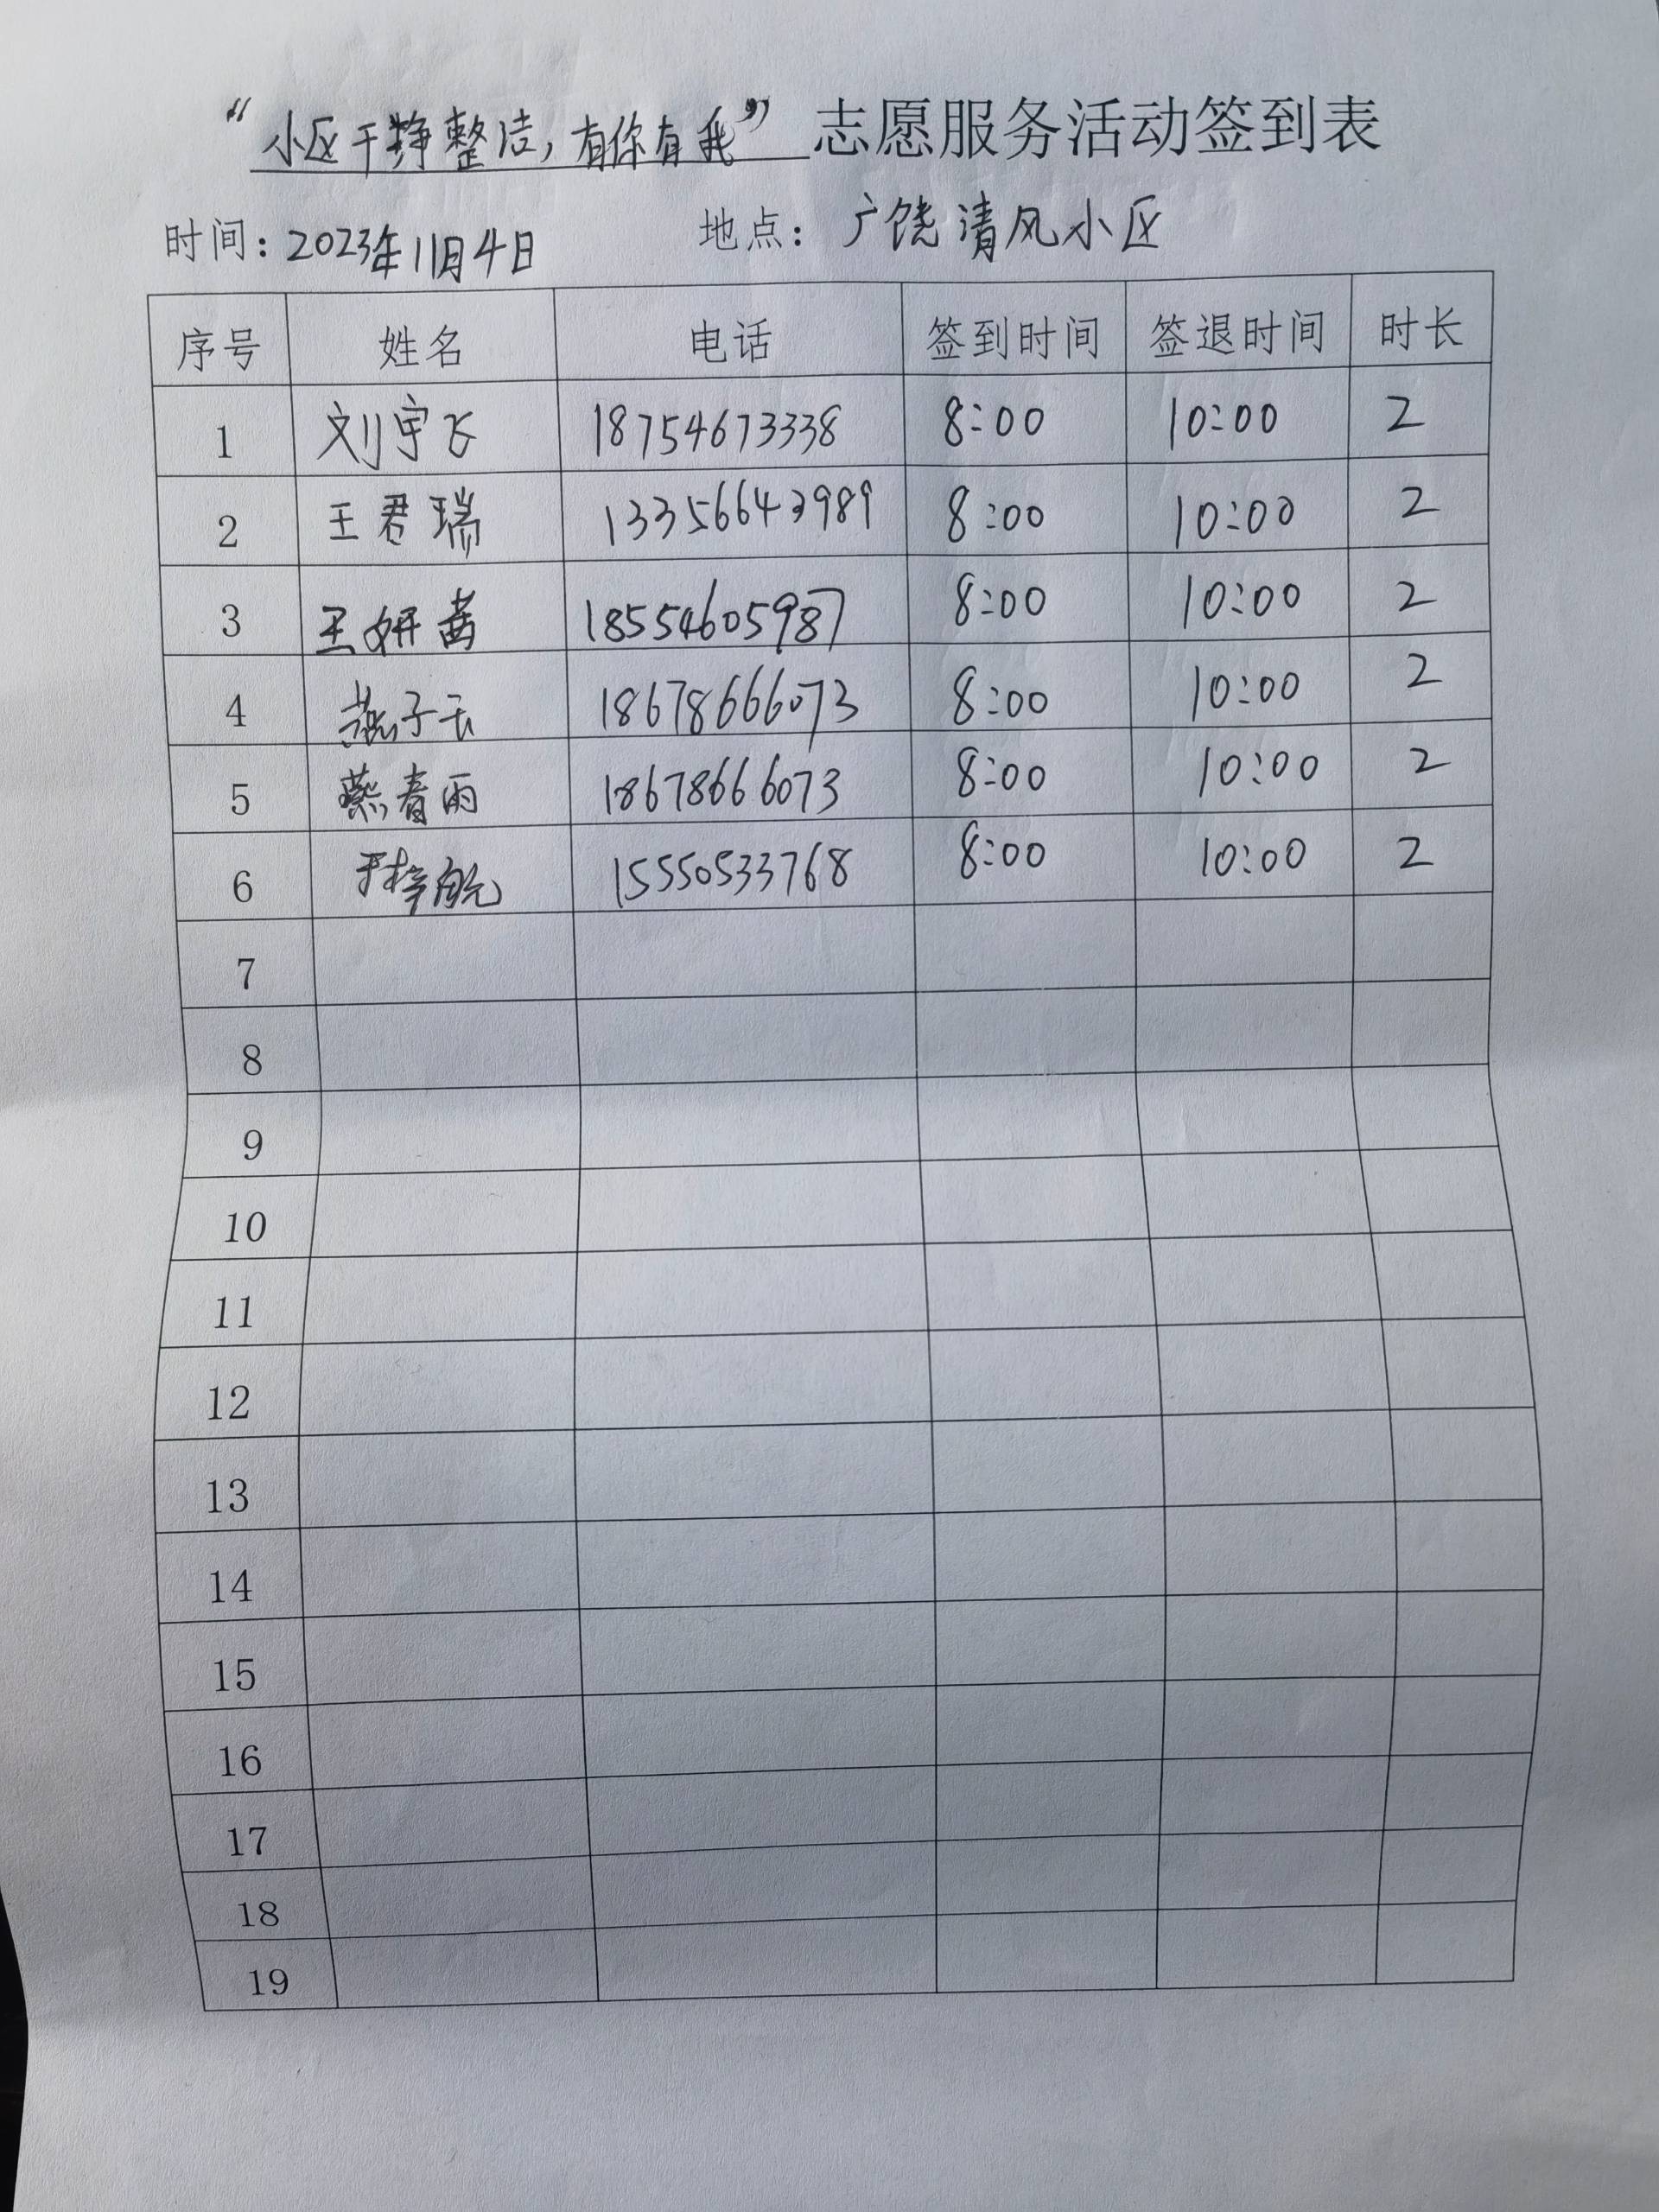 “小区干净整洁，有你有我” 志愿服务活动签到表
时间：2023年11月4日 地点：广饶清风小区
序号 姓名 电话 签到时间 签退时间 时长
1 刘宇飞 18754673338 8:00 10:00 2
2 王君瑞 13356643989 8:00 10:00 2
3 王妍茜 18554605987 8:00 10:00 2
4 燕子云 18678666073 8:00 10:00 2
5 燕春雨 18678666073 8:00 10:00 2
6 梓航 15550533768 8:00 10:00 2
7
8
9
10
11
12
13
14
15
16
17
18
19